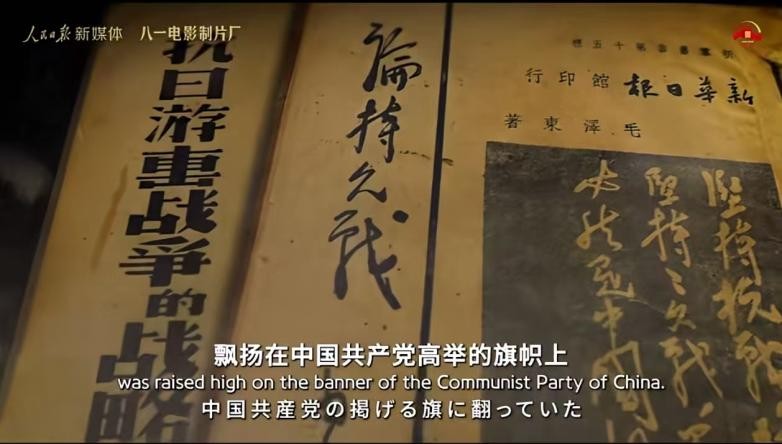 人民日报 新媒体 八一电影制片厂
抗日游击战争的战略
論持久战
新羣叢書第十五種
新華日報館印行
毛澤東著
坚持抗战
坚持持久战
飘扬在中国共产党高举的旗帜上
was raised high on the banner of the Communist Party of China.
中国共産党の掲げる旗に翻っていた